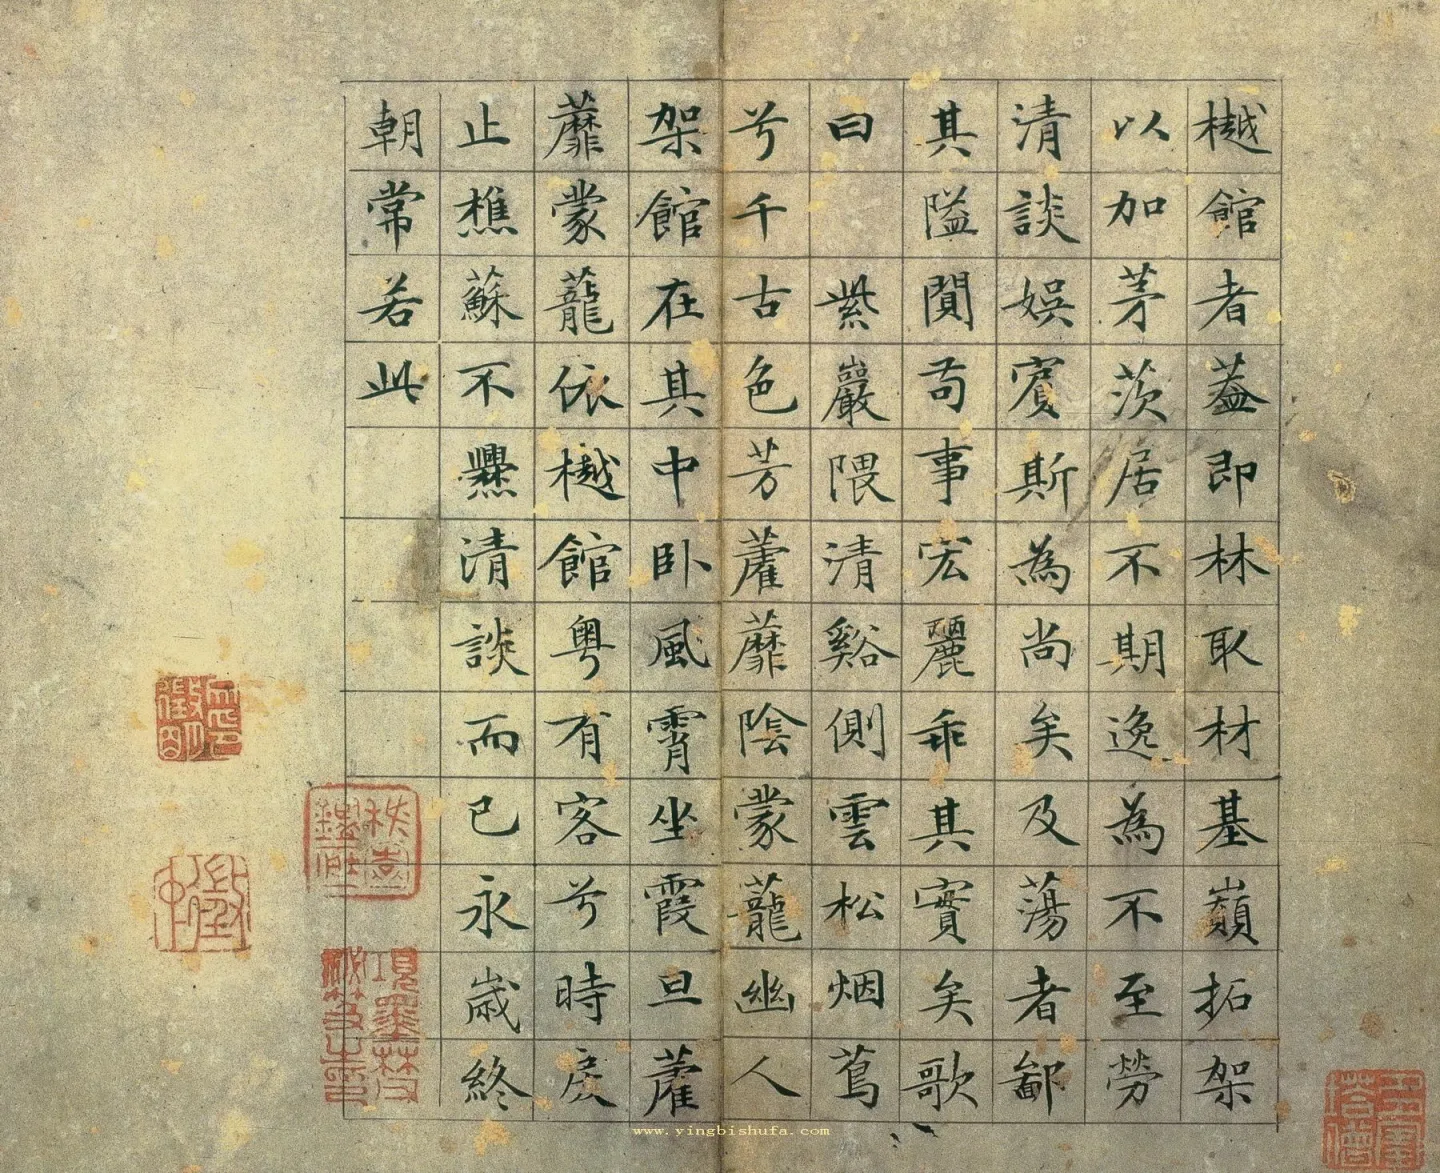 樾館者蓋即林取材基巔拓架
以加茅茨居不期逸為不至勞
清談娛賓斯為尚矣及蕩者鄙
其隘闃苟事宏麗乖其實矣歌
曰 紫巖隈清谿側雲松烟蔦
兮千古色芳藿蘼陰蒙蘢幽人
架館在其中卧風霄坐霞旦藿
蘼蒙蘢依樾館粵有客兮時戾
止樵蘇不爨清談而已永歲終
朝常若此
項墨林父祕笈之印
www.yingbishufa.com